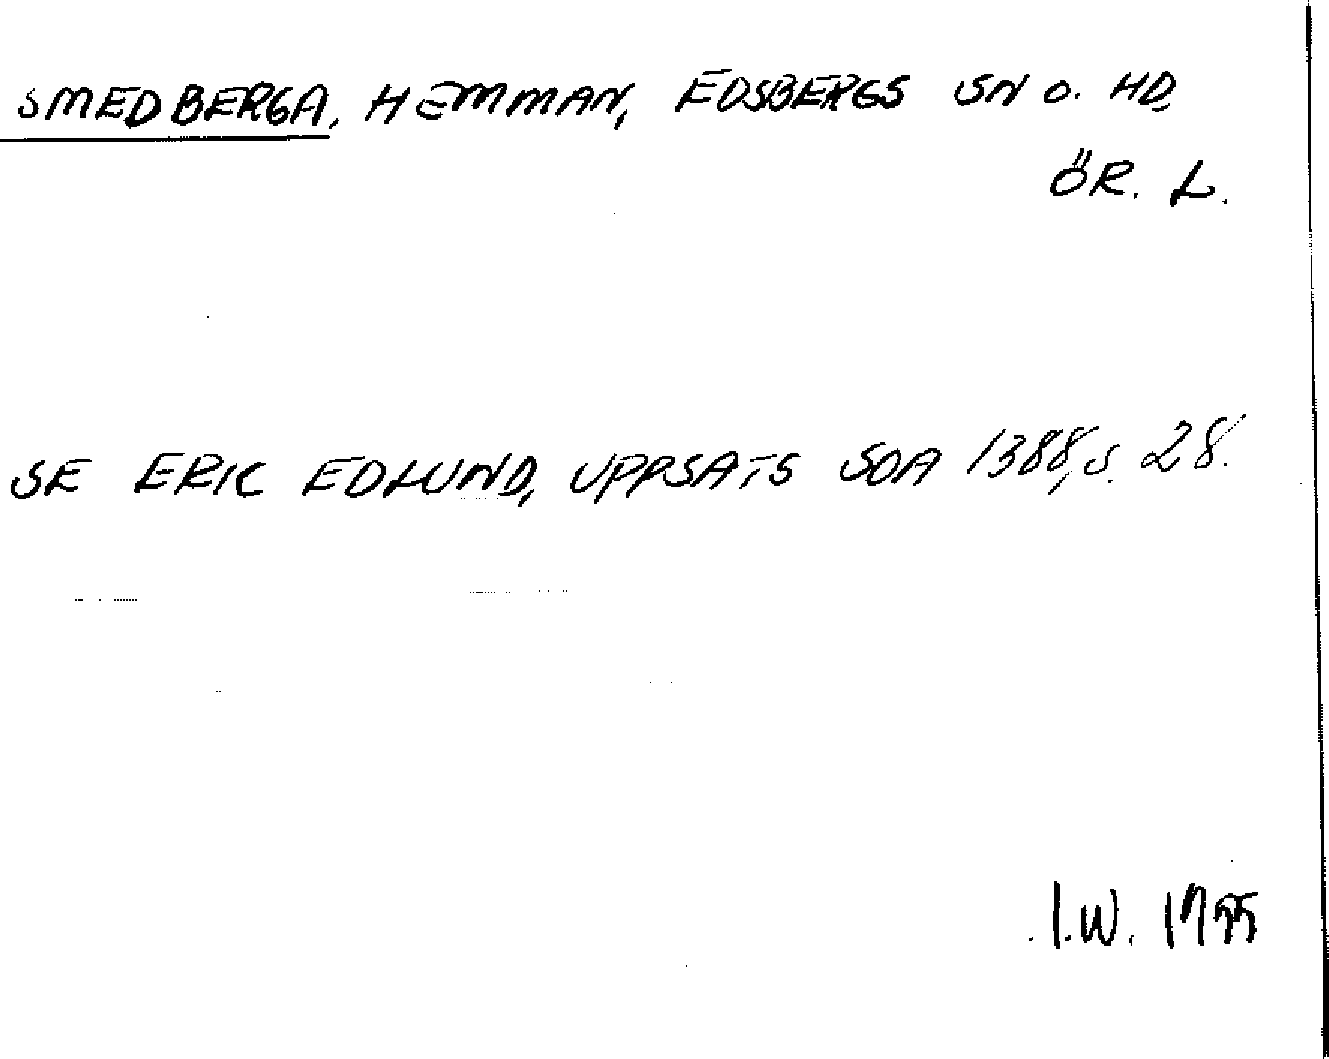 SMEDBERGA, HEMMAN, EDSBERGS SN O. HD,
ÖR. L.
SE ERIC EDLUND, UPPSATS SOA 1388, S. 28.
I.W.